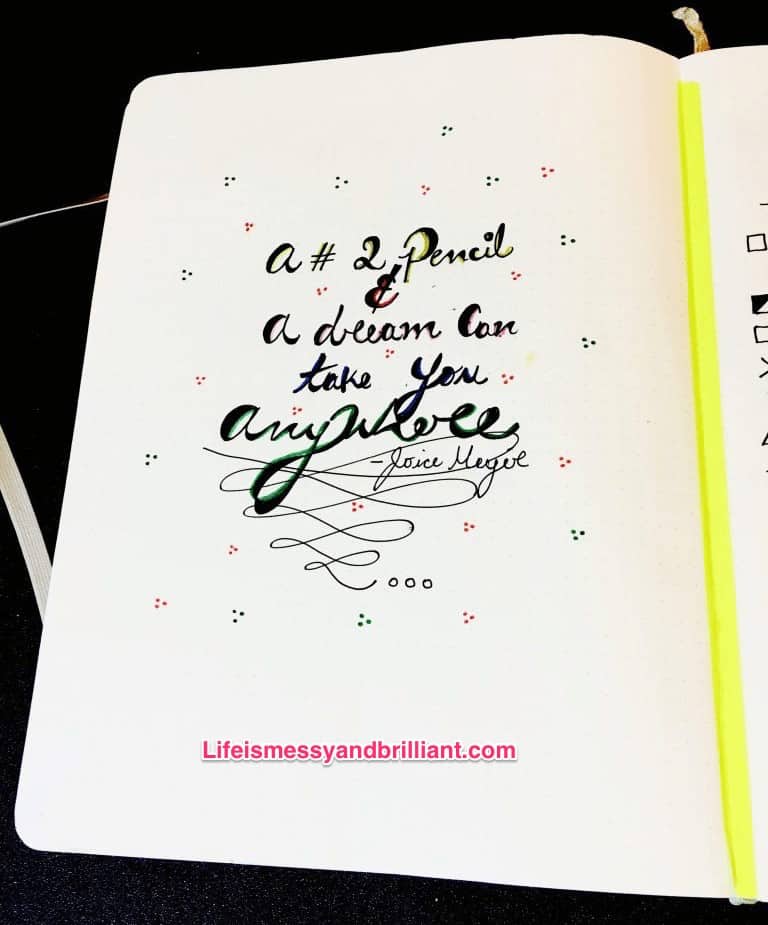 A # 2 Pencil
&
A dream Can
take You
anywhere
- Joice Meyer
Lifeismessyandbrilliant.com